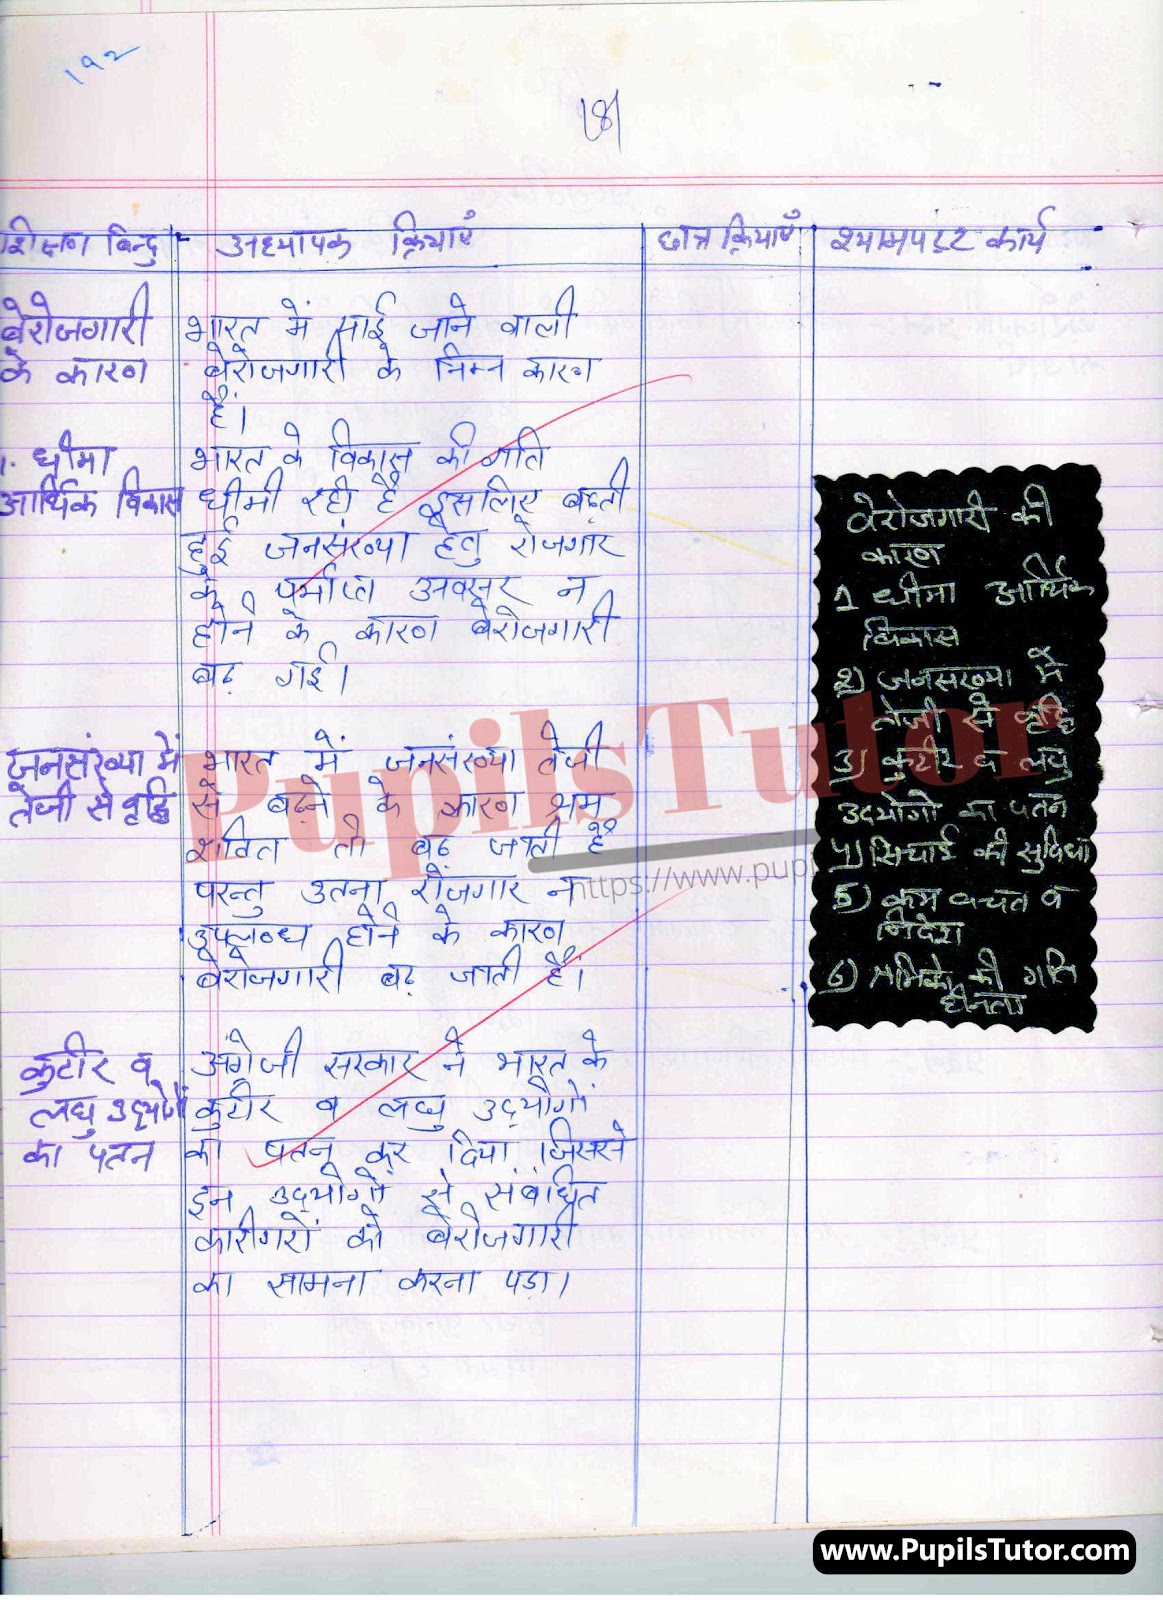 192
181
शिक्षण बिन्दु अध्यापक क्रियाएँ छात्र क्रियाएँ श्यामपट्ट कार्य
बेरोजगारी
के कारण
भारत में साई जाने वाली
बेरोजगारी के निम्न कारण
हैं।
1. धीमा
आर्थिक विकास
भारत के विकास की गति
धीमी रही है इसलिए बढ़ती
हुई जनसंख्या हेतु रोजगार
के पर्याप्त अवसर न
होने के कारण बेरोजगारी
बढ़ गई।
जनसंख्या में
तेजी से वृद्धि
भारत में जनसंख्या तेजी
से बढ़ने के कारण श्रम
शक्ति तो बढ़ जाती है
परन्तु उतना रोजगार न
उपलब्ध होने के कारण
बेरोजगारी बढ़ जाती है।
कुटीर व
लघु उद्योगों
का पतन
अंग्रेजी सरकार ने भारत के
कुटीर व लघु उद्योगों
का पतन कर दिया जिससे
इन उद्योगों से संबंधित
कारीगरों को बेरोजगारी
का सामना करना पड़ा।
बेरोजगारी की
कारण
1 धीमा आर्थिक
विकास
2) जनसंख्या में
तेजी से वृद्धि
3) कुटीर व लघु
उद्योगो का पतन
4) सिचाई की सुविधा
5) कम बचत व
निवेश
6) श्रमिको की गति
हीनता
PupilsTutor
https://www.pupi
www.PupilsTutor.com